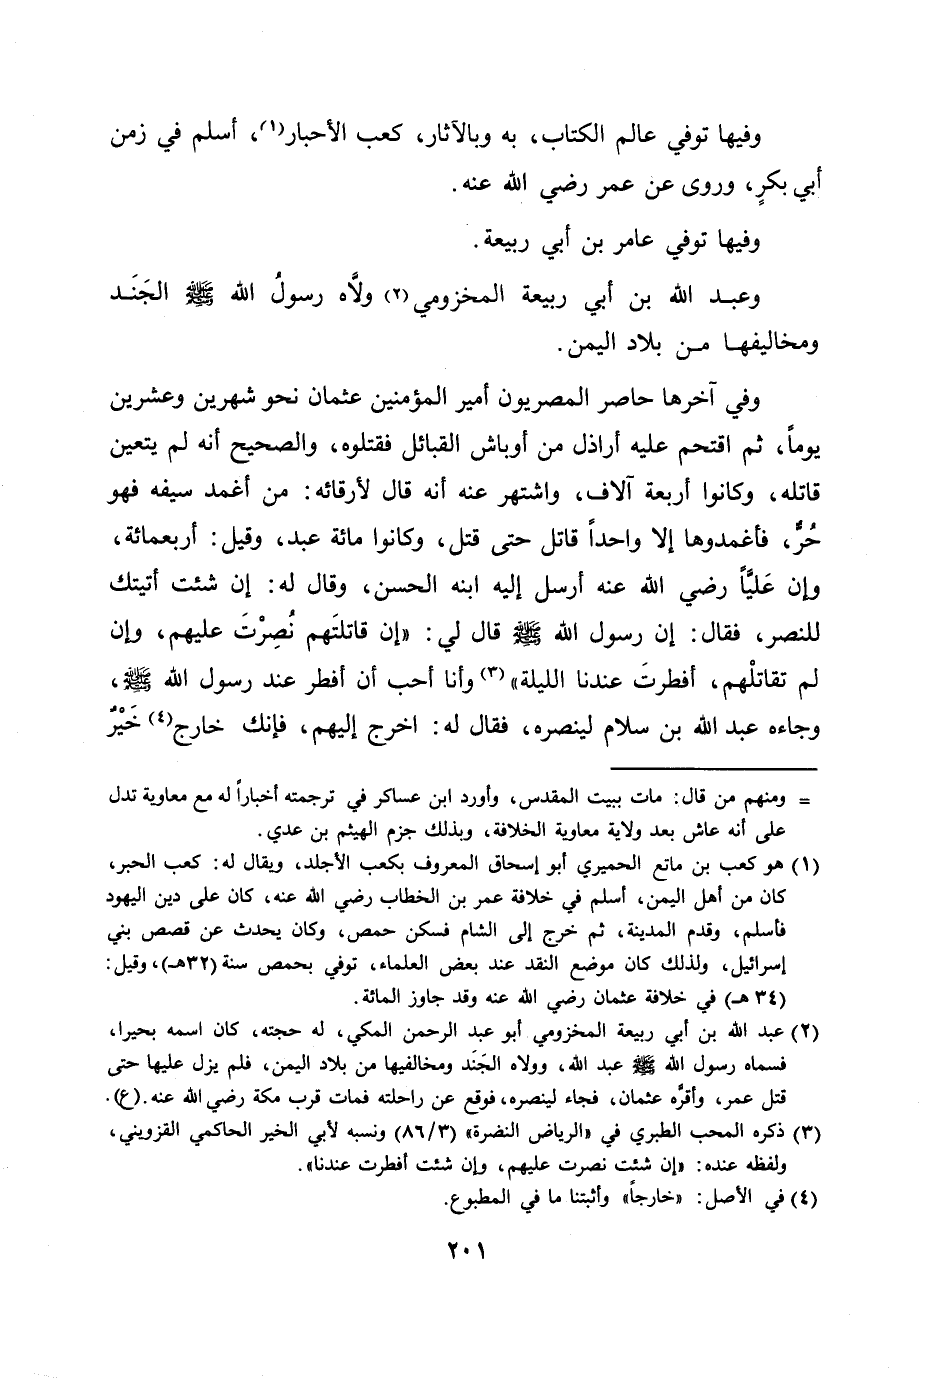 وفيها توفي عالم الكتاب، به وبالآثار، كعب الأحبار(١)، أسلم في زمن
أبي بكرٍ، وروى عن عمر رضي الله عنه.
وفيها توفي عامر بن أبي ربيعة.
وعبـد الله بن أبي ربيعة المخزومي(٢) ولاَّه رسولُ الله ﷺ الجَنَـد
ومخاليفهـا مـن بلاد اليمن.
وفي آخرها حاصر المصريون أمير المؤمنين عثمان نحو شهرين وعشرين
يوماً، ثم اقتحم عليه أراذل من أوباش القبائل فقتلوه، والصحيح أنه لم يتعين
قاتله، وكانوا أربعة آلاف، واشتهر عنه أنه قال لأرقائه: من أغمد سيفه فهو
حُرٌّ، فأغمدوها إلا واحداً قاتل حتى قتل، وكانوا مائة عبد، وقيل: أربعمائة،
وإن عَليَّاً رضي الله عنه أرسل إليه ابنه الحسن، وقال له: إن شئت أتيتك
للنصر، فقال: إن رسول الله ﷺ قال لي: «إن قاتلتَهم نُصِرْتَ عليهم، وإن
لم تقاتلْهم، أفطرتَ عندنا الليلة»(٣) وأنا أحب أن أفطر عند رسول الله ﷺ،
وجاءه عبد الله بن سلام لينصره، فقال له: اخرج إليهم، فإنك خارج(٤) خَيْرٌ
= ومنهم من قال: مات ببيت المقدس، وأورد ابن عساكر في ترجمته أخباراً له مع معاوية تدل
على أنه عاش بعد ولاية معاوية الخلافة، وبذلك جزم الهيثم بن عدي.
(١) هو كعب بن ماتع الحميري أبو إسحاق المعروف بكعب الأجلد، ويقال له: كعب الحبر،
كان من أهل اليمن، أسلم في خلافة عمر بن الخطاب رضي الله عنه، كان على دين اليهود
فأسلم، وقدم المدينة، ثم خرج إلى الشام فسكن حمص، وكان يحدث عن قصص بني
إسرائيل، ولذلك كان موضع النقد عند بعض العلماء، توفي بحمص سنة (٣٢هـ)، وقيل:
(٣٤ هـ) في خلافة عثمان رضي الله عنه وقد جاوز المائة.
(٢) عبد الله بن أبي ربيعة المخزومي أبو عبد الرحمن المكي، له حجته، كان اسمه بحيرا،
فسماه رسول الله ﷺ عبد الله، وولاه الجَنَد ومخالفيها من بلاد اليمن، فلم يزل عليها حتى
قتل عمر، وأقرَّه عثمان، فجاء لينصره، فوقع عن راحلته فمات قرب مكة رضي الله عنه. (ع).
(٣) ذكره المحب الطبري في «الرياض النضرة» (٨٦/٣) ونسبه لأبي الخير الحاكمي القزويني،
ولفظه عنده: «إن شئت نصرت عليهم، وإن شئت أفطرت عندنا».
(٤) في الأصل: «خارجاً» وأثبتنا ما في المطبوع.
٢٠١